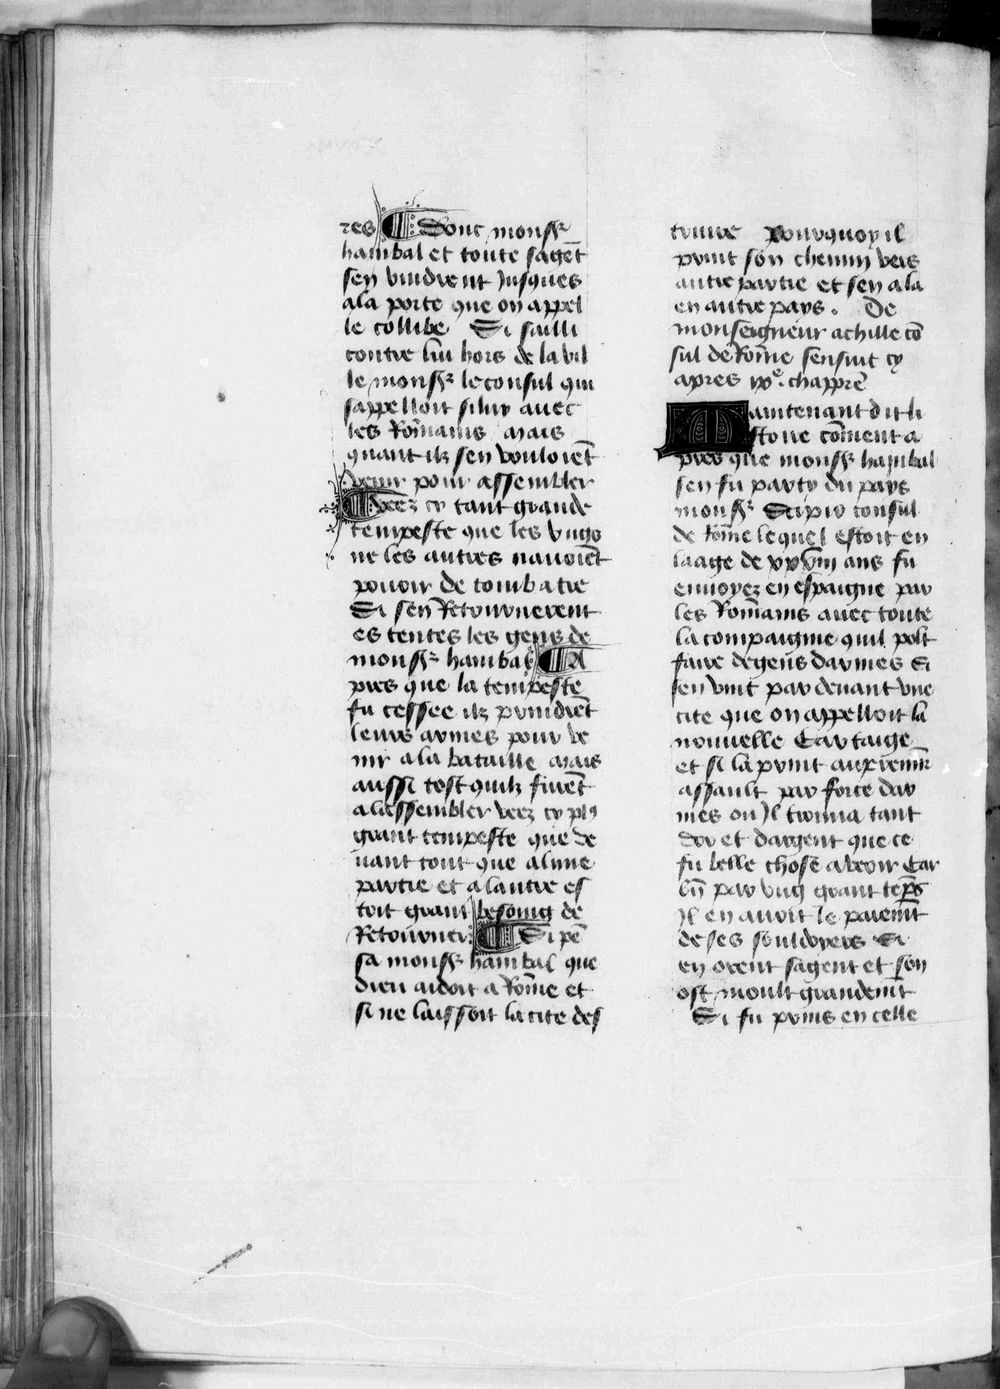 res Adonc monsr̄
hanibal et toute sa gēt
sen vindrent Jusques
a la porte que on appel
le collibe Si sailli
contre lui hors de la vil
le monsr̄ le consul qui
sappelloit silvy avec
les Rōmains mais
quant ilz sen vouloiēt
venir pour assembler
veez cy tant grande
tempeste que les vngs
ne les autres navoiēt
povoir de combatre
Si sen Retournerent
es tentes les gens de
monsr̄ hanibal A
pres que la tempeste
fu cessee ilz prindrēt
leurs armes pour ve
nir a la bataille mais
aussi tost quilz furēt
a lassembler veez cy pl9
grant tempeste que de
uant tout que a lune
partie et a lautre es
toit grant besoing de
Retourner Si pē
sa monsr̄ hanibal que
dieu aidoit a Rōme et
si ne laissoit la cite des
truire pourquoy il
print son chemin vers
autre partie et sen ala
en autre pays. De
monseigneur achille cō
sul de Rōme sensuit cy
apres ixe. chapprē
Maintenant dit li
stoire cōment a
pres que monsr̄ hanibal
sen fu party du pays
monsr̄ Scipio consul
de Rōme lequel estoit en
laage de xxviii ans fu
envoyez en espaigne par
les Rōmains avec toute
la compaignie quil polt
faire de gens darmes Si
sen vint par devant vne
cite que on appelloit la
nouvelle Cartaige
et si la print au premīr
assault par force dar
mes ou Il trouva tant
dor et dargent que ce
fu belle chose a veoir Car
bn̄ par vng grant tēps
Il en auoit le paiem̄t
de ses souldoyers Si
en orent sagent et son
ost moult grandem̄t
Si fu prins en celle